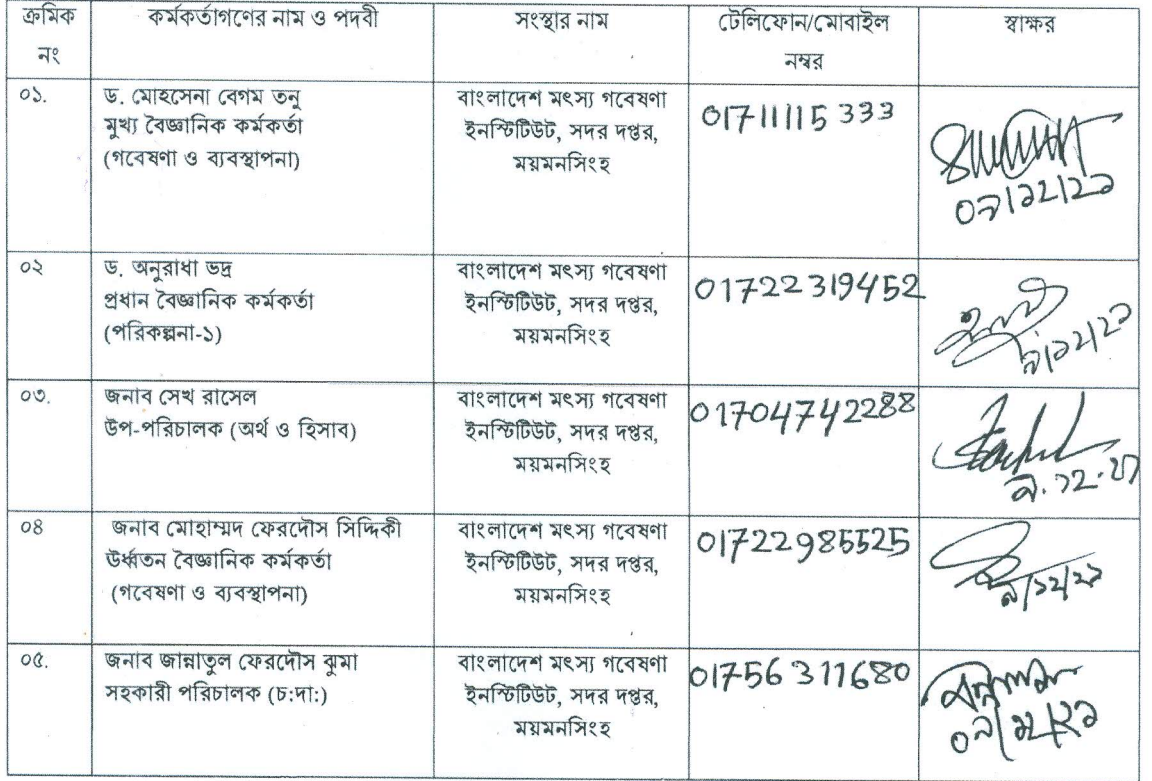 ক্রমিক নং
কর্মকর্তাগণের নাম ও পদবী
সংস্থার নাম
টেলিফোন/মোবাইল নম্বর
স্বাক্ষর
০১.
ড. মোহসেনা বেগম তনু
মুখ্য বৈজ্ঞানিক কর্মকর্তা
(গবেষণা ও ব্যবস্থাপনা)
বাংলাদেশ মৎস্য গবেষণা
ইনস্টিটিউট, সদর দপ্তর,
ময়মনসিংহ
01711115 333
০৯/১২/২১
০২
ড. অনুরাধা ভদ্র
প্রধান বৈজ্ঞানিক কর্মকর্তা
(পরিকল্পনা-১)
বাংলাদেশ মৎস্য গবেষণা
ইনস্টিটিউট, সদর দপ্তর,
ময়মনসিংহ
01722319452
৯/১২/২১
০৩.
জনাব সেখ রাসেল
উপ-পরিচালক (অর্থ ও হিসাব)
বাংলাদেশ মৎস্য গবেষণা
ইনস্টিটিউট, সদর দপ্তর,
ময়মনসিংহ
01704742288
৯.১২.২১
০৪
জনাব মোহাম্মদ ফেরদৌস সিদ্দিকী
উর্ধ্বতন বৈজ্ঞানিক কর্মকর্তা
(গবেষণা ও ব্যবস্থাপনা)
বাংলাদেশ মৎস্য গবেষণা
ইনস্টিটিউট, সদর দপ্তর,
ময়মনসিংহ
01722985525
৯/১২/২১
০৫.
জনাব জান্নাতুল ফেরদৌস ঝুমা
সহকারী পরিচালক (চ:দা:)
বাংলাদেশ মৎস্য গবেষণা
ইনস্টিটিউট, সদর দপ্তর,
ময়মনসিংহ
01756 311680
০৯/১২/২১